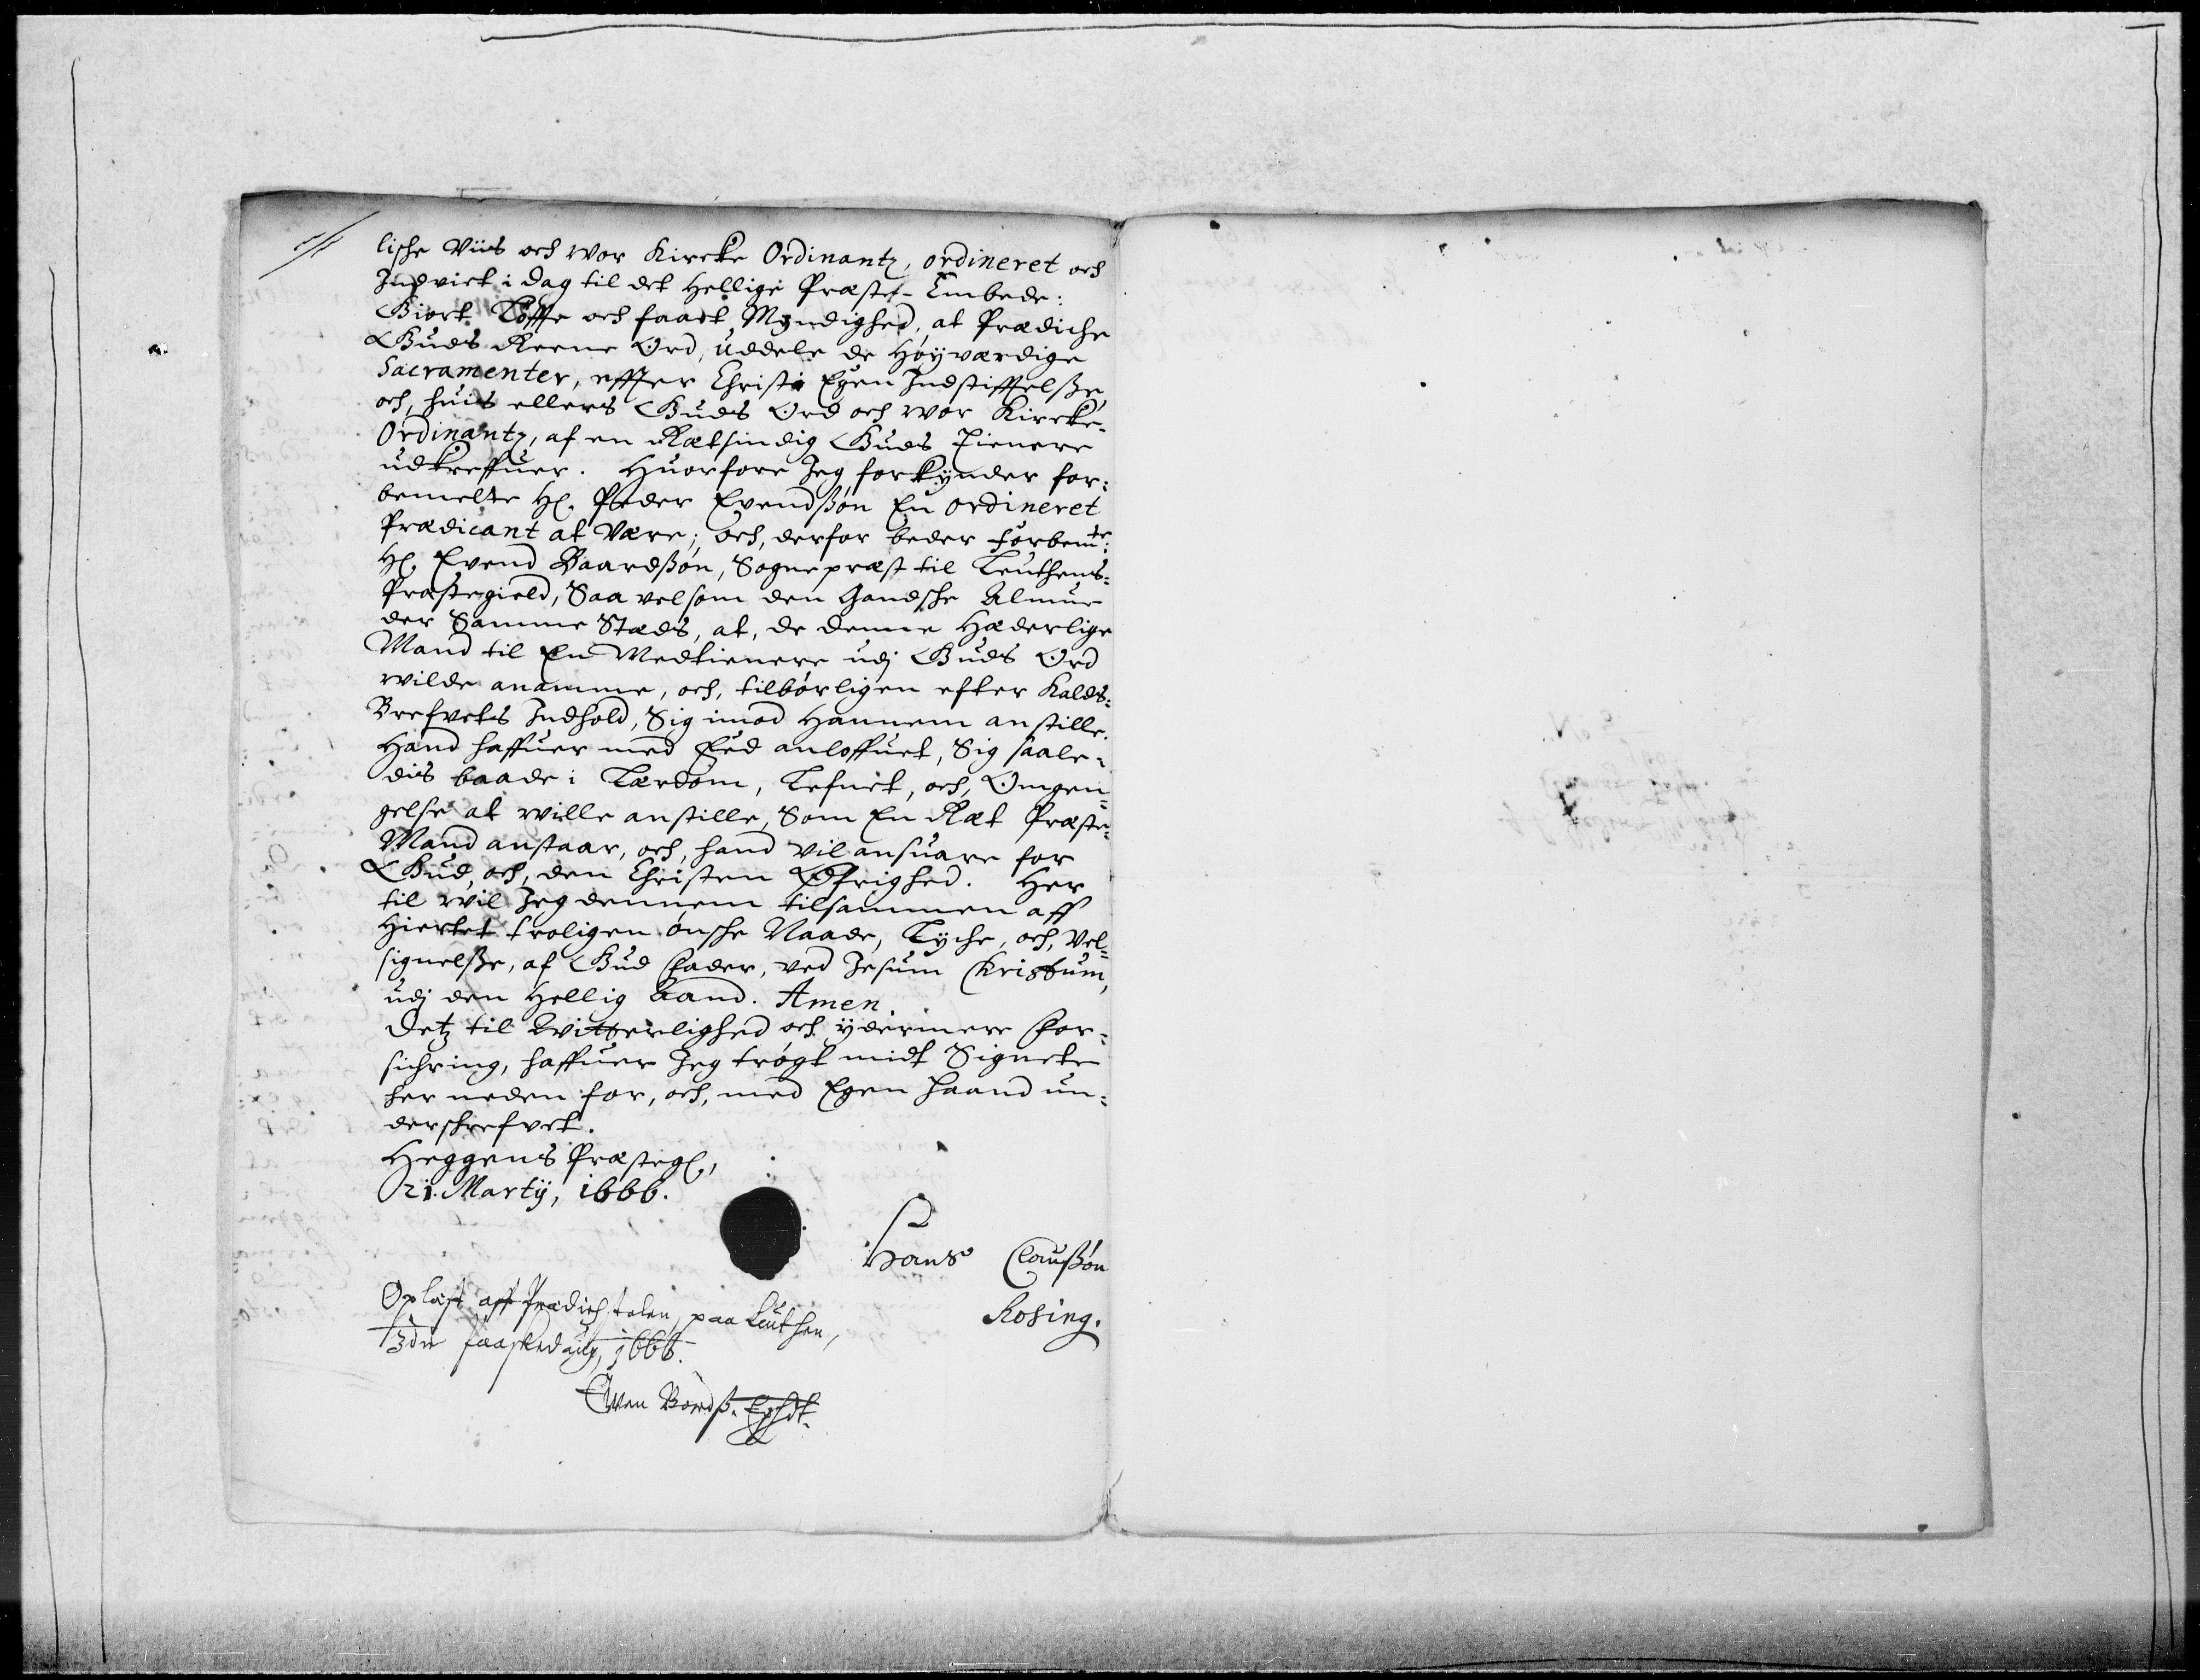 lische Viis och wor Kircke Ordinantz, ordineret och
Indviet i dag til det Hellige Præste-Embede:
Giort Løffte och faaet Myndighed, at Prædiche
Guds Reene Ord, uddele de Høyværdige
Sacramenter, effter Christi Egen Indstifftelsße,
och, huis ellers Guds Ord och wor Kircke-
Ordinantz, af en Rætsindig Guds Tienere
udkreffuer. Huorfore Jeg forkynder for:
bemelte H. Peder Evendßøn En ordineret
Prædicant at være; och, derfor beder forbemte:
H. Evend Baardßøn, Sognepræst til Leuthens-
Præstegield, Saa vel som den gandsche Almue
der Samme Stæds, at, de denne Hæderlige
Mand til En Medtienere udj Guds Ord
wilde anamme, och, tilbørligen efter Kalds-
Brefvets Indhold, Sig imod Hannem anstille.
Hand haffuer med Eed anloffuet, Sig saale-
dis baade i Lærdom, Lefnet, och, Omgen-
gelse at wille anstille, Som En Ræt Præste-
Mand anstaar, och, hand vil ansuare for
Gud, och, den Christen Øfrighed. Her
til wil Jeg dennem tilsammen aff
Hiertet troligen ønsche Naade, Lyche, och, Vel-
signelsße, af Gud Fader, ved Jesum Christum,
udj den Hellig Aand. Amen.
Detz til Witterlighed och ydermere For-
sichring, haffuer Jeg trøgt midt Signete
her neden for, och, med Egen Haand un-
derskrefvet.
Heggens Præsteg,
21. Martij, 1666.
Hans Claußøn
Rosing.
Oplæst aff Prædichstolen, paa Leuthen,
3die Paaskedaug, 1666.
Even Bordß. Eghdt.